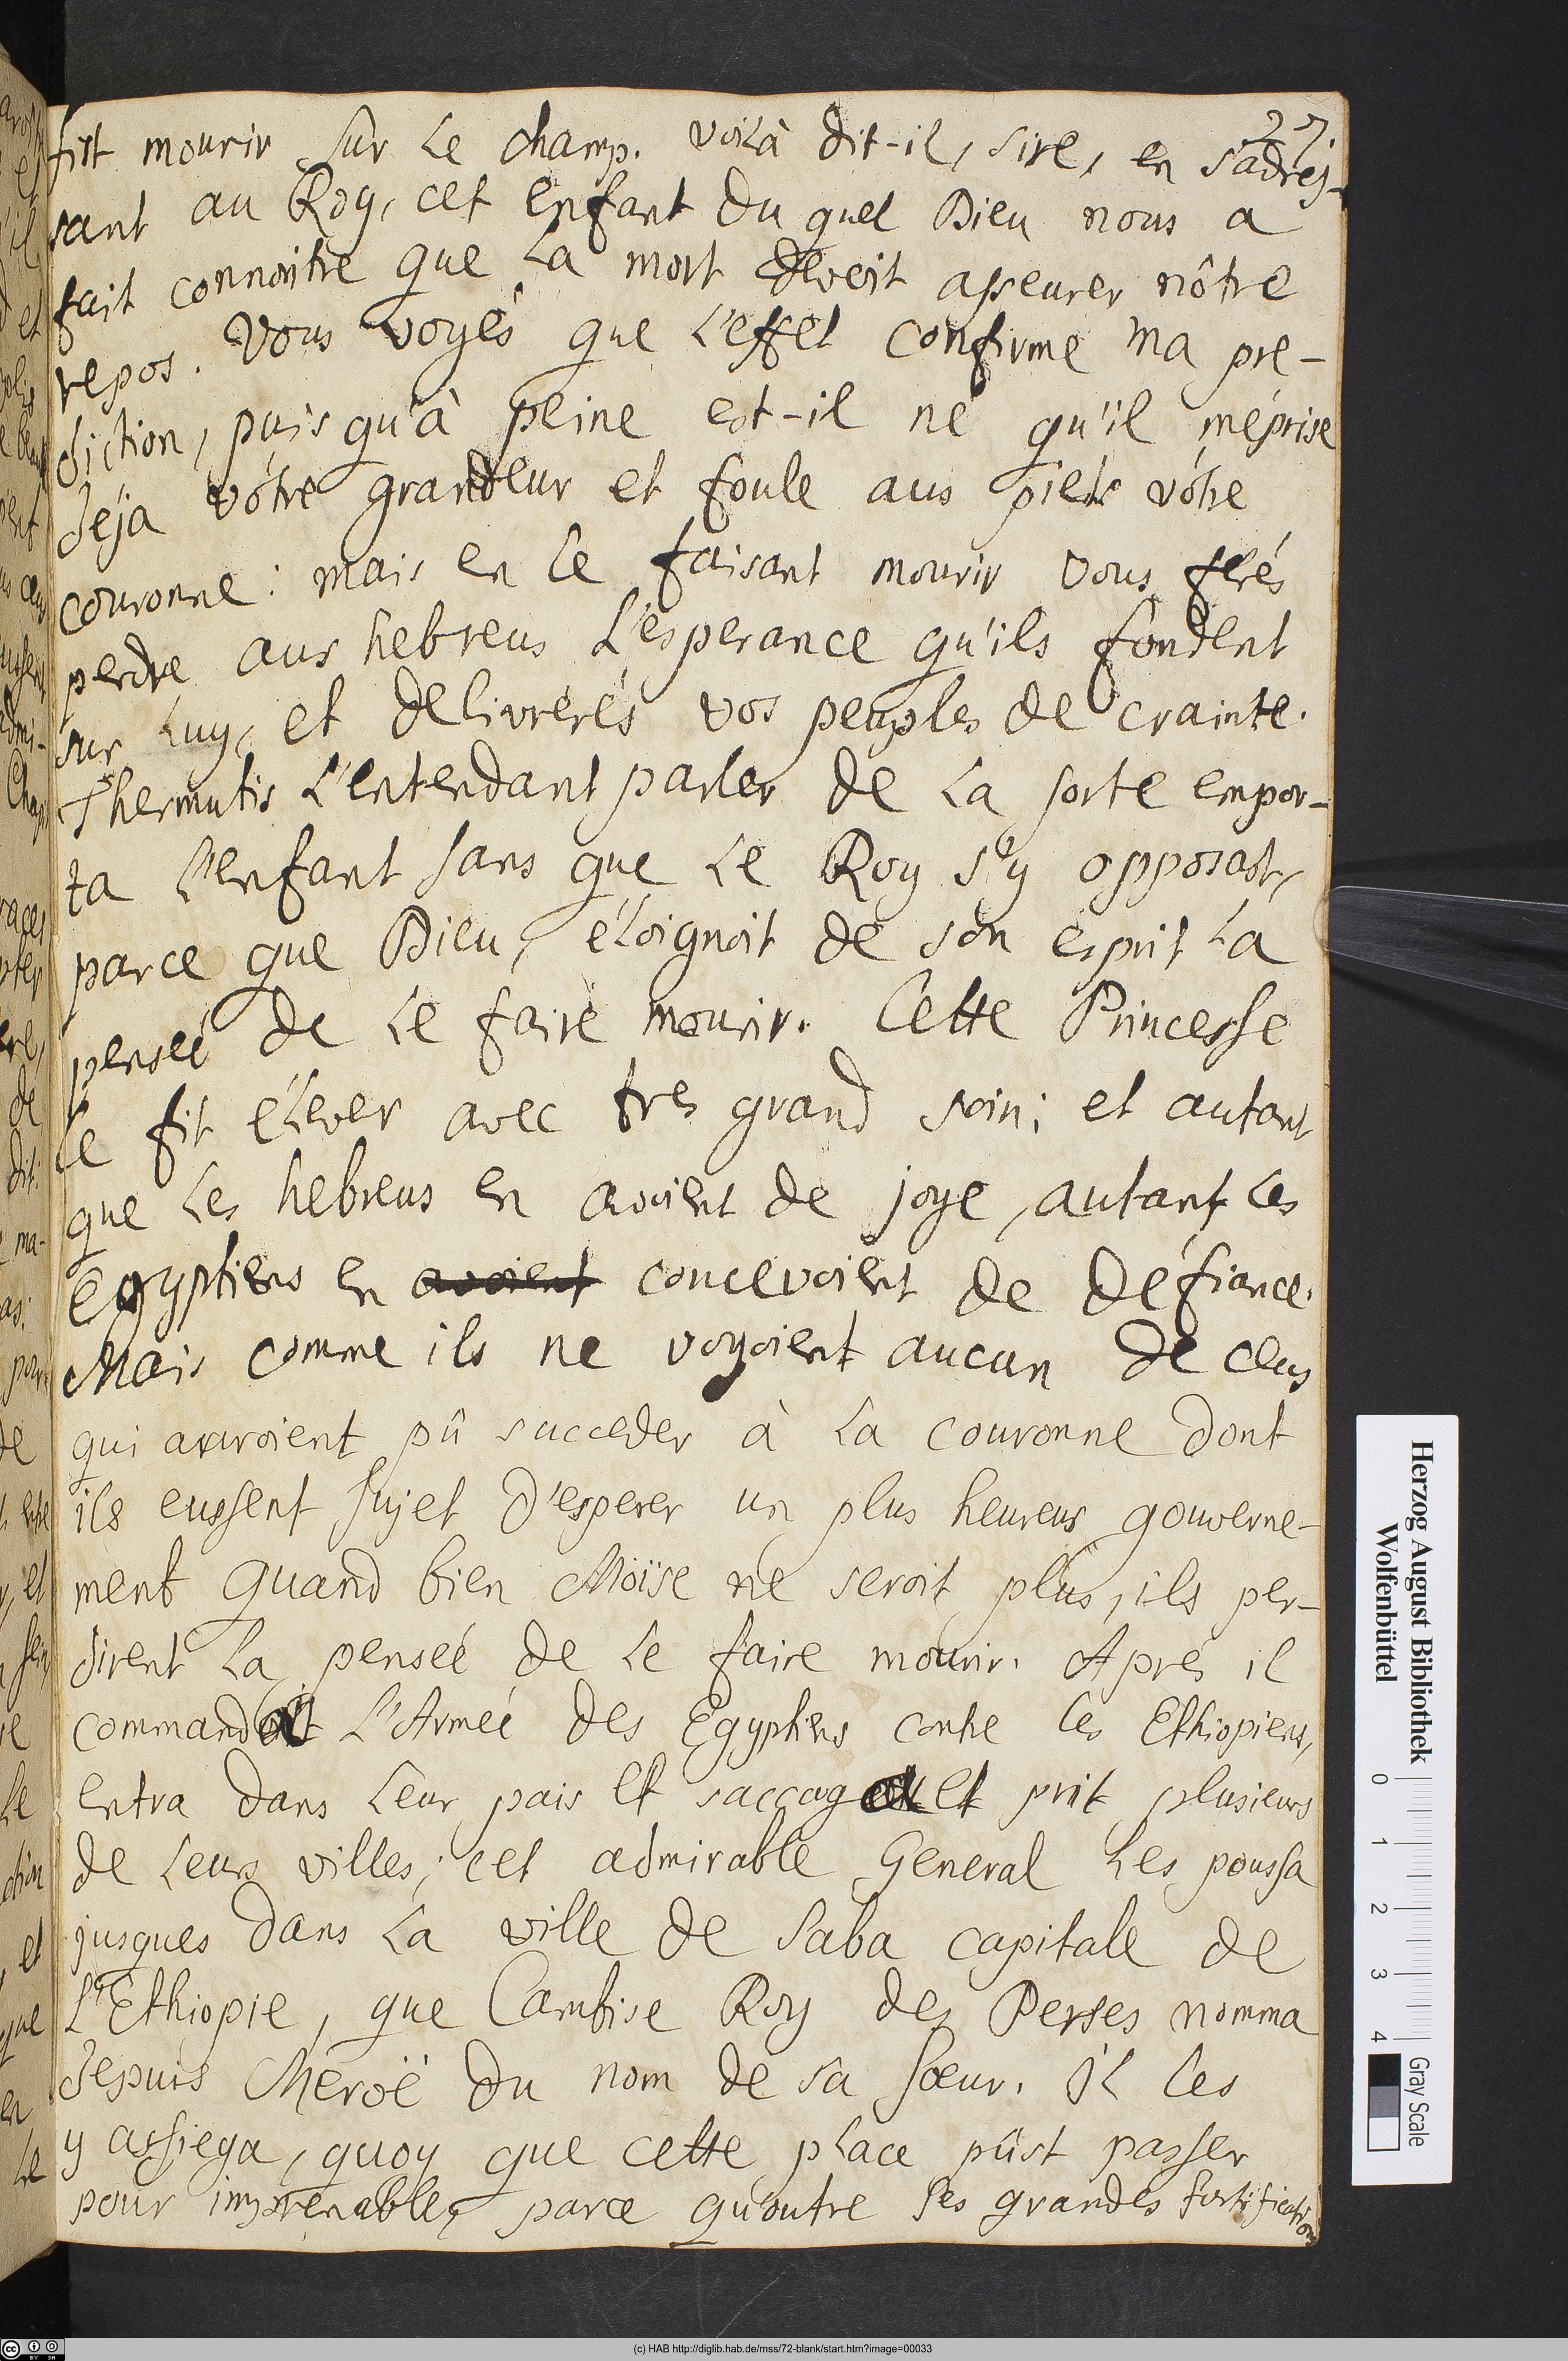 27.
fist mourir sur le champ. voilà dit-il, sire, en s'adres-
sant au Roy, cet enfant du quel Dieu nous a
fait connoitre que la mort devoit asseurer nôtre
repos. Vous voyés que l'effet confirme ma pre-
diction, puis qu'à peine est-il né qu'il méprise
déja vôtre grandeur et foule aus pieds vôtre
couronne: mais en le faisant mourir vous ferés
perdre aus hebreus l'esperance qu'ils fondent
sur luy, et delivrerés vos peuples de crainte.
Thermutis l'entendant parler de la sorte empor-
ta l'enfant sans que le Roy s'y opposast,
parce que Dieu, éloignoit de son esprit la
penseé de le faire mourir. Cette Princesse
le fit élever avec tres grand soin; et autant
que les hebreus en avoient de joye, autant les
egyptiens en avoient concevoient de défiance.
Mais comme ils ne voyoient aucun de ceus
qui auroient pû succeder à la couronne dont
ils eussent sujet d'esperer un plus heureus gouverne-
ment quand bien Moïse ne seroit plus, ils per-
dirent la penseé de le faire mourir. Aprés il
commandait l'Armeé des Egyptiens contre les Ethiopiens,
entra dans leur pais et saccag et prit plusieurs
de leurs villes; cet admirable General les poussa
jusques dans la ville de Saba capitale de
l'Ethiopie, que Cambise Roy des Perses nomma
depuis Meroë du nom de sa sœur. Il les
y assiega, quoy que cette place pûst passer
pour imprenable, parce qu'outre ses grandes fortifications
Herzog August Bibliothek
Wolfenbüttel
0 1 2 3 4
Gray Scale
(c) HAB http://diglib.hab.de/mss/72-blank/start.htm?image=00033